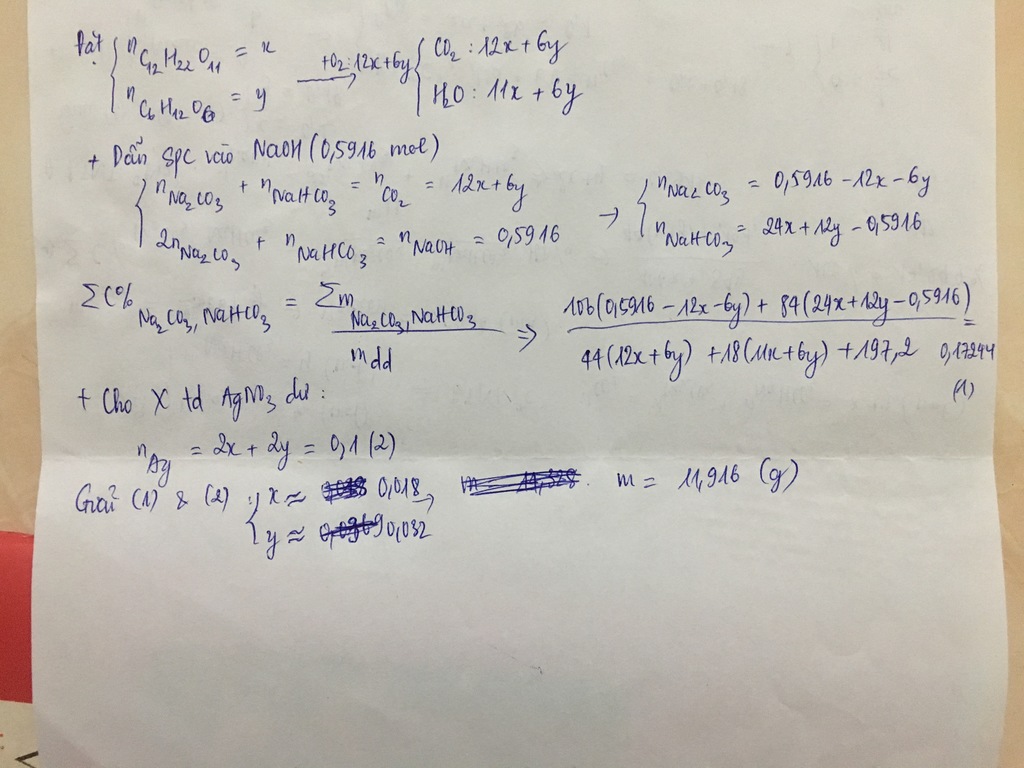 Đặt { nC12H22O11 = x
nC6H12O6 = y
+O2: 12x+6y → { CO2 : 12x + 6y
H2O : 11x + 6y
+ Dẫn spc vào NaOH (0,5916 mol)
{ nNa2CO3 + nNaHCO3 = nCO2 = 12x+6y
2nNa2CO3 + nNaHCO3 = nNaOH = 0,5916
→ { nNa2CO3 = 0,5916 - 12x - 6y
nNaHCO3 = 24x + 12y - 0,5916
ΣC% Na2CO3, NaHCO3 = Σm Na2CO3, NaHCO3 / mdd
⇒ 106(0,5916 - 12x - 6y) + 84(24x + 12y - 0,5916) / 44(12x + 6y) + 18(11x + 6y) + 197,2 = 0,17244
(1)
+ Cho X td AgNO3 dư :
nAg = 2x + 2y = 0,1 (2)
Giải (1) & (2) : { x ≈ 0,018 → m = 11,916 (g)
y ≈ 0,032